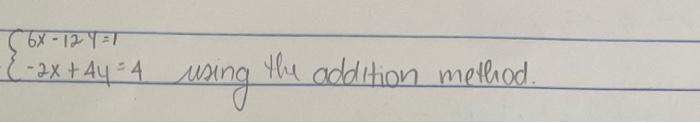 6x - 12y = 1
-2x + 4y = 4 using the addition method.